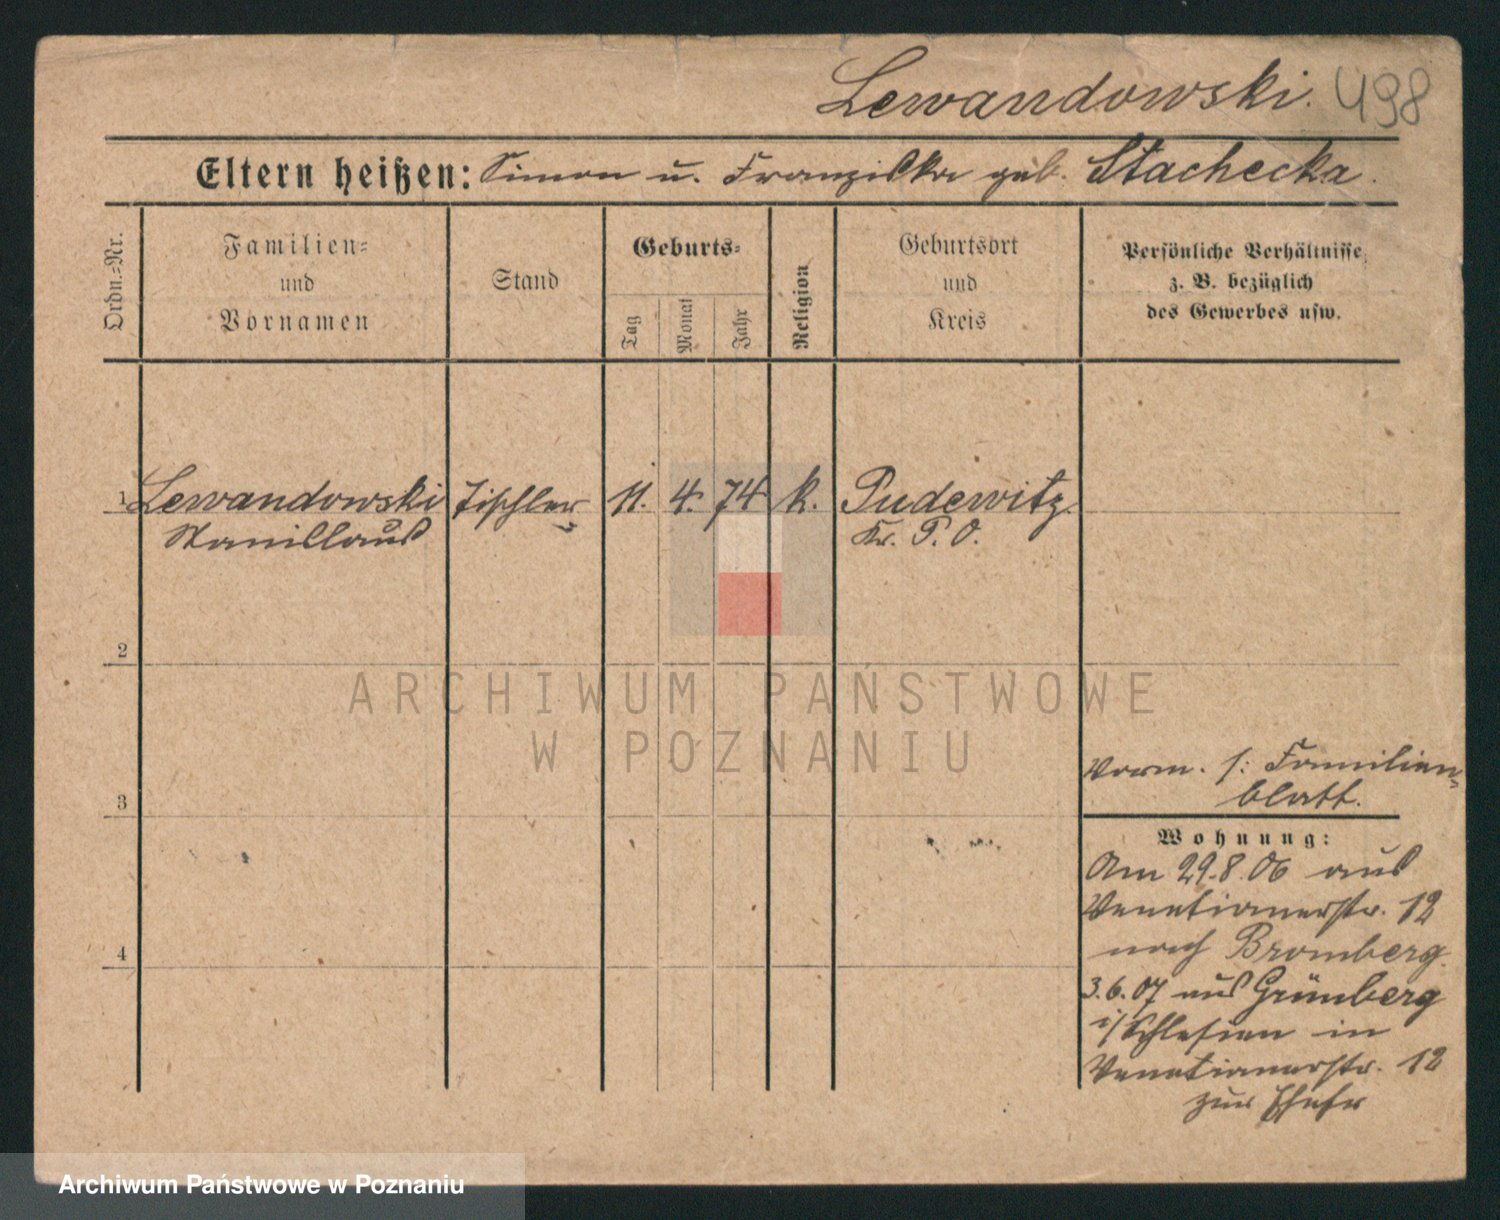 Lewandowski. 498
Eltern heißen: Simon u. Franziska geb. Stachecka.
Ordn.-Nr.
Familien- und Vornamen
Stand
Geburts-
Tag
Monat
Jahr
Religion
Geburtsort und Kreis
Persönliche Verhältnisse
z. B. bezüglich
des Gewerbes usw.
1 Lewandowski Tischler 11. 4. 74 k. Pudewitz
Stanislaus Kr. P. O.
2
ARCHIWUM PAŃSTWOWE
W POZNANIU
Vorm. s: Familien-
blatt.
3
Wohnung:
Am 29.8.06 aus
Venetianerstr. 12
nach Bromberg.
4
3.6.07 aus Grünberg
i/Schlesien in
Venetianerstr. 12
zur Ehefr
Archiwum Państwowe w Poznaniu